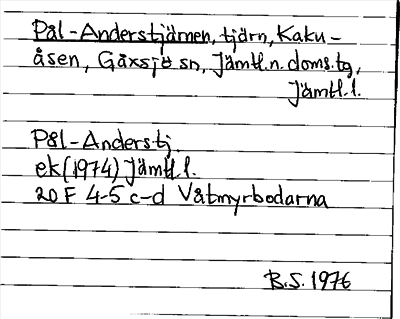 Pål-Anderstjärnen, tjärn, Kaku-
åsen, Gåxsjö sn, Jämtl.n.doms.tg,
Jämtl.l.
Pål-Anderstj.
ek (1974) Jämtl.l.
20 F 4-5 c-d Våtmyrbodarna
B.S. 1976